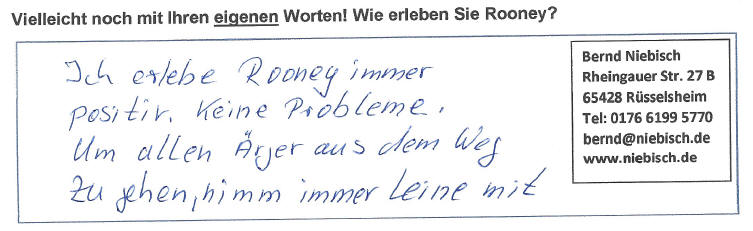 Vielleicht noch mit Ihren eigenen Worten! Wie erleben Sie Rooney?
Ich erlebe Rooney immer
positiv. Keine Probleme.
Um allen Ärjer aus dem Weg
zu gehen, nimm immer Leine mit
Bernd Niebisch
Rheingauer Str. 27 B
65428 Rüsselsheim
Tel: 0176 6199 5770
bernd@niebisch.de
www.niebisch.de